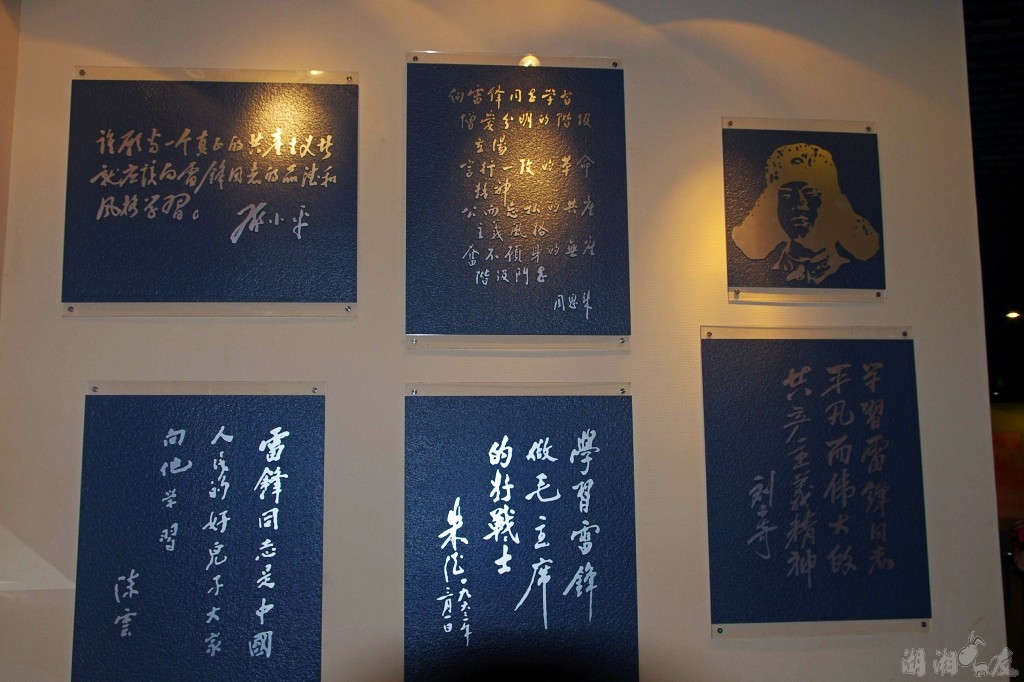 谁愿当一个真正的共产主义者
就应该向雷锋同志的品德和
风格学习。
邓小平
向雷锋同志学习
憎爱分明的阶级
立场
言行一致的革命
精神
公而忘私的共产
主义风格
奋不顾身的無产
阶级鬥志
周恩来
雷鋒同志是中國
人民的好兒子大家
向他学習
陈雲
學習雷鋒
做毛主席
的好戰士
朱德
一九六三年
三月一日
学習雷锋同志
平凡而伟大的
共产主义精神
刘少奇
湖湘 友